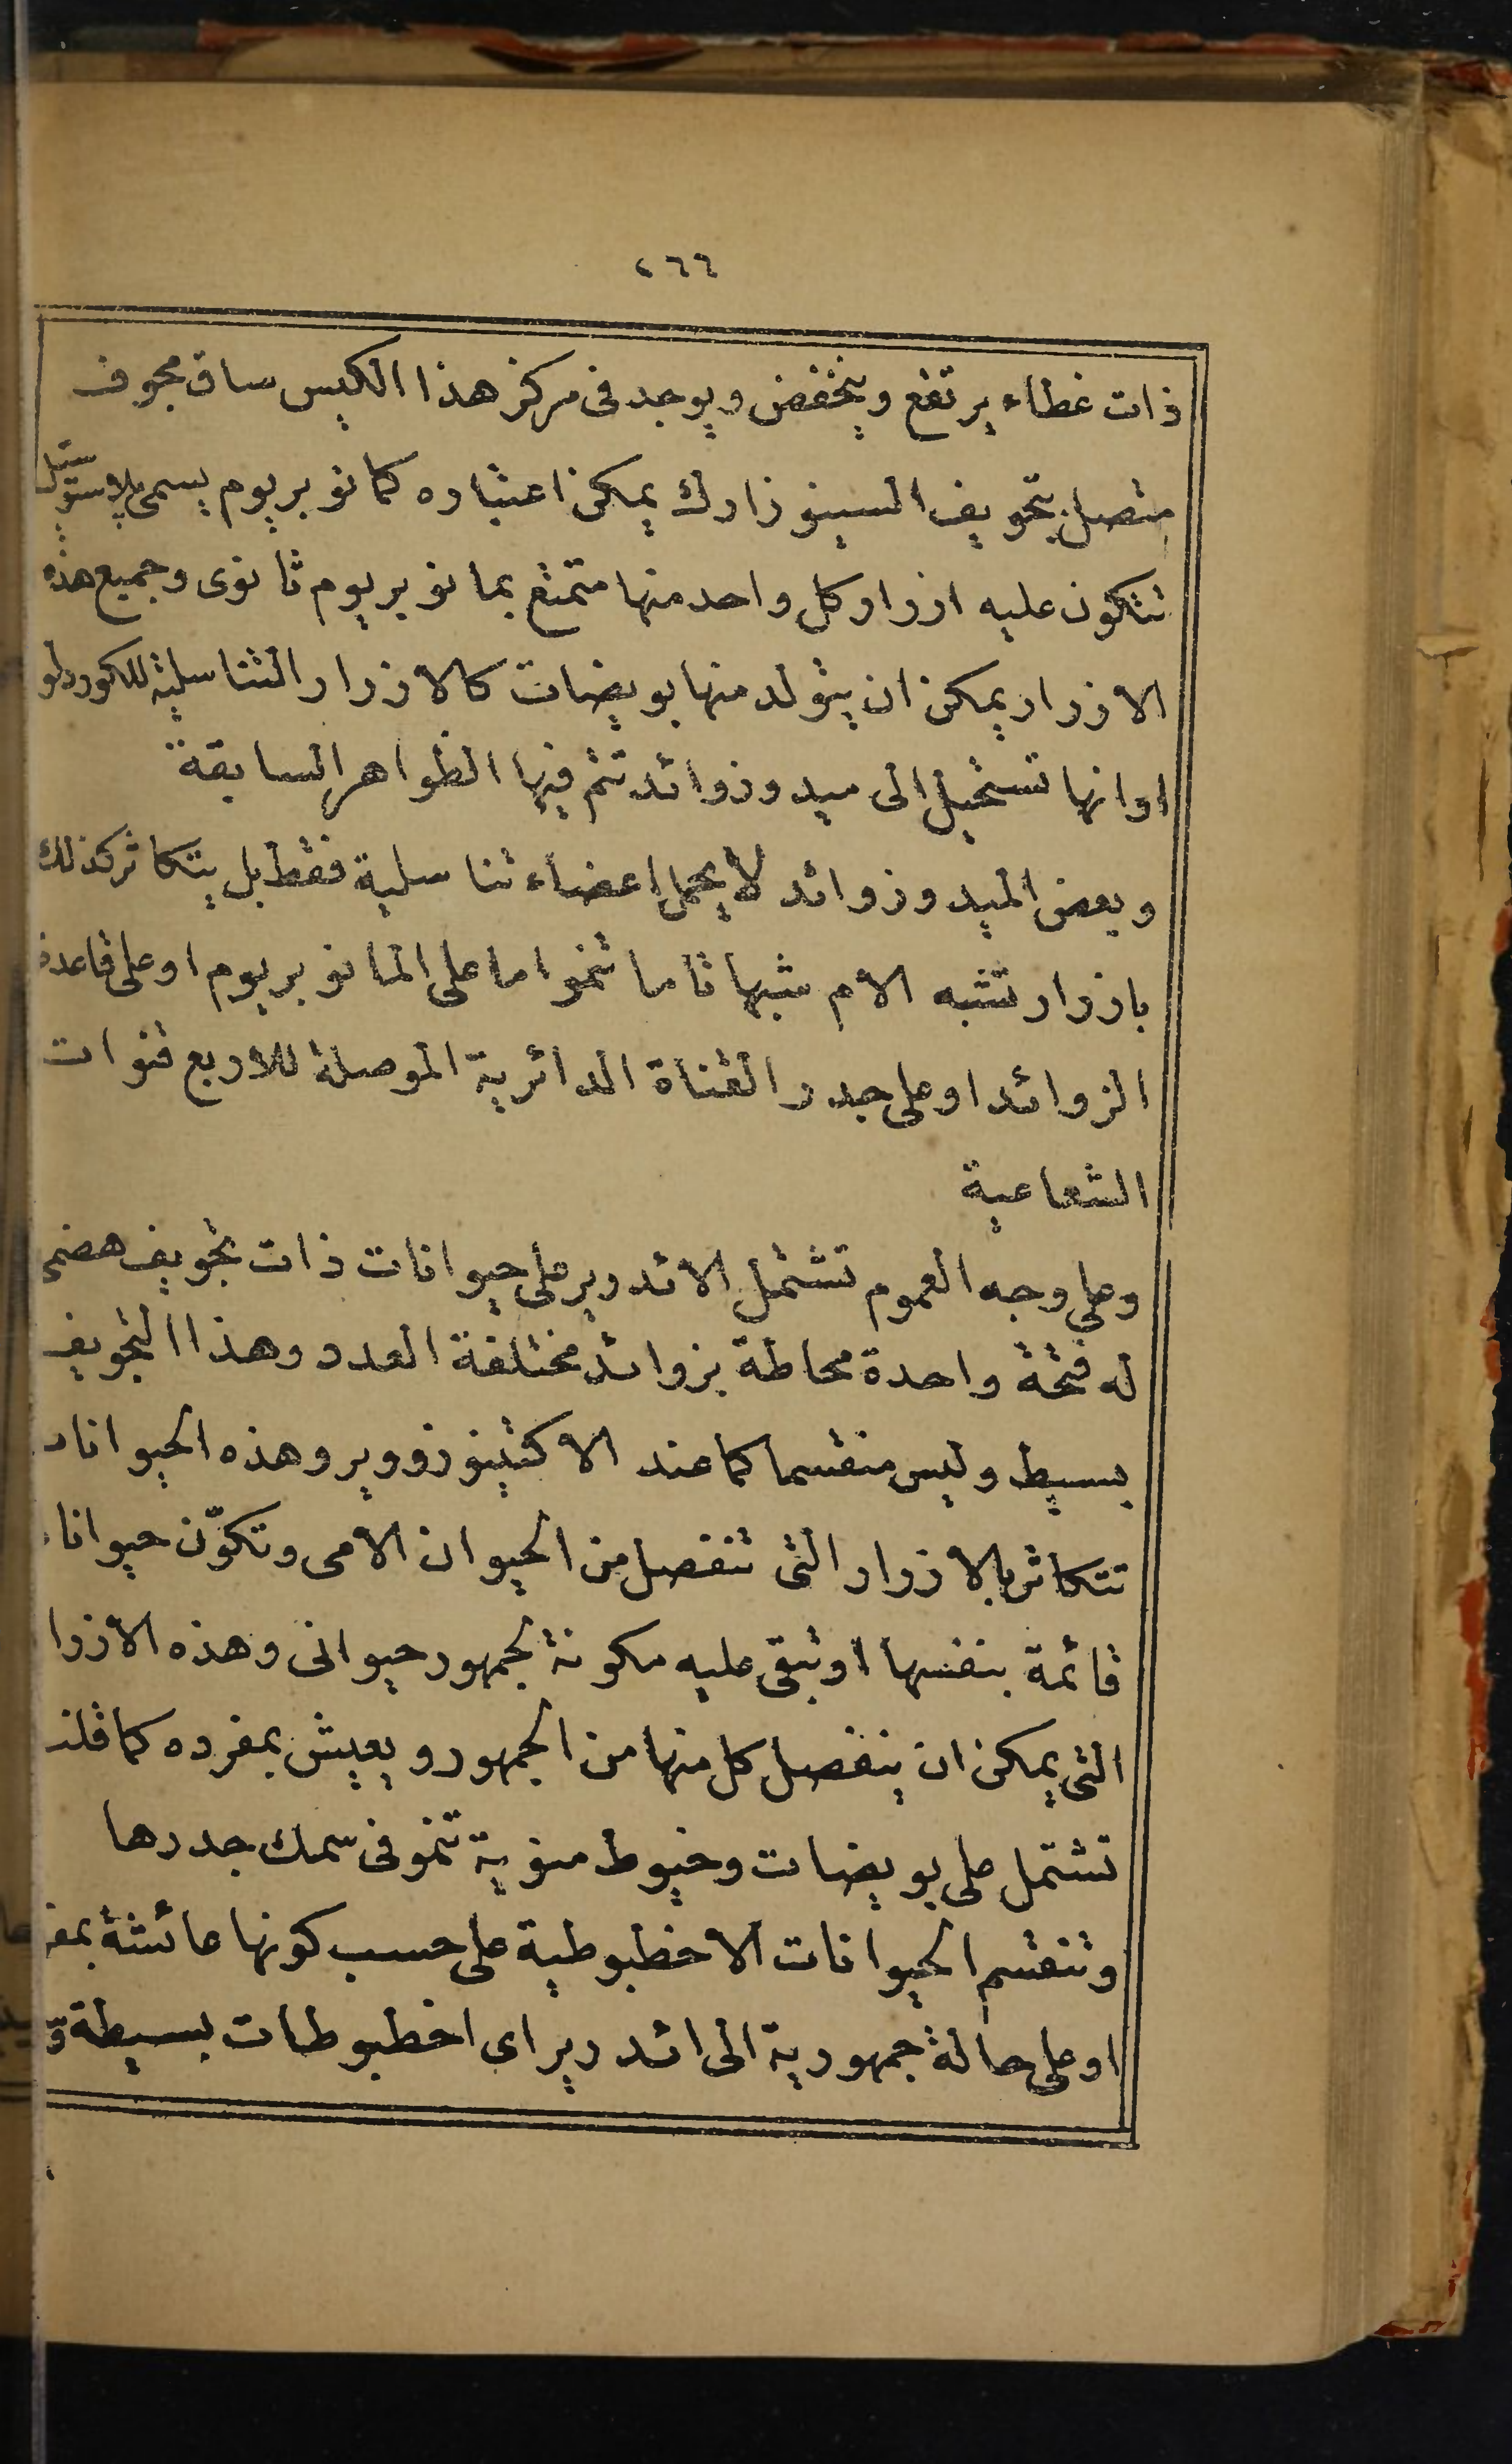 ٤٦٦
ذات غطاء يرتفع وينخفض ويوجد فى مركز هذا الكيس ساق مجوف
متصل بتجويف السينوزارك يمكن اعتباره كمانوبريوم يسمى
تتكون عليه ازرار كل واحد منها متمتع بمانوبريوم ثانوى وجميع هذه
الازرار يمكن ان يتولد منها بويضات كالازرار التناسلية للكوردلو
اوانها تستحيل الى ميدوزوائد تتم فيها الظواهر السابقة
وبعض الميدوزوائد لا يحمل اعضاء تناسلية فقط بل يتكاثر كذلك
بازرار تشبه الام شبها تاما تنمو اما على المانوبريوم او على قاعدة
الزوائد او على جدر القناة الدائرية الموصلة للاربع قنوات
الشعاعية
وعلى وجه العموم تشتمل الائدرير على حيوانات ذات تجويف هضمى
له فتحة واحدة محاطة بزوائد مختلفة العدد وهذا التجويف
بسيط وليس منقسما كما عند الاكتينوزووير وهذه الحيوانات
تتكاثر بالازرار التى تنفصل من الحيوان الامى وتكوّن حيوانا
قائمة بنفسها او تبقى عليه مكونة لجمهور حيوانى وهذه الازرا
التى يمكن ان ينفصل كل منها من الجمهور ويعيش بمفرده كما قلنا
تشتمل على بويضات وخيوط منوية تنمو فى سمك جدرها
وتنقسم الحيوانات الاخطبوطية على حسب كونها عائشة بمفر
او على حالة جمهورية الى ائدرير اى اخطبوطات بسيطة